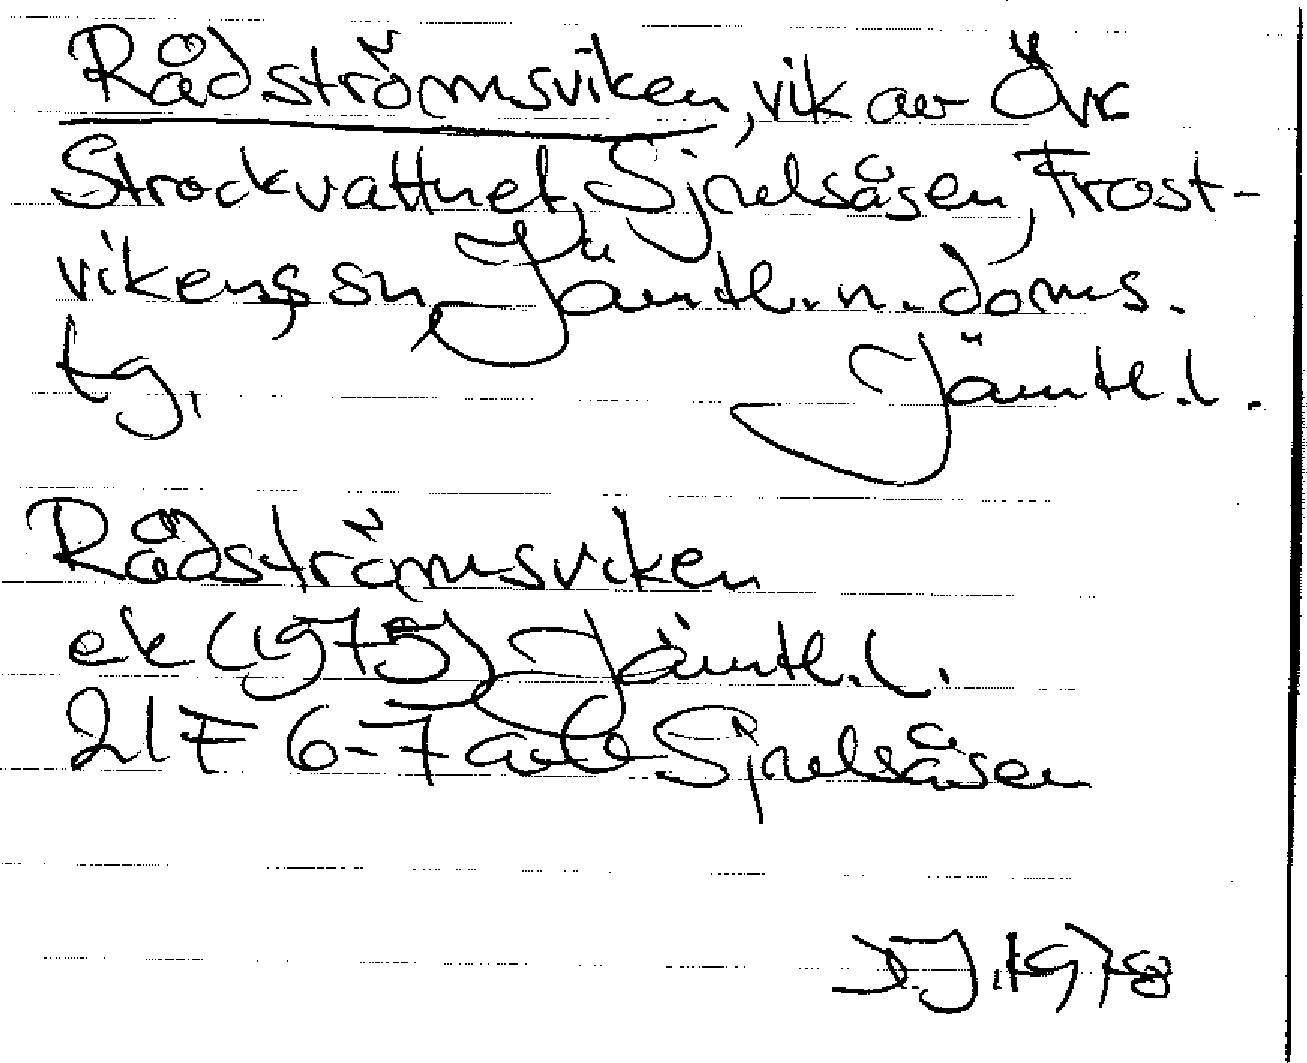 Rådströmsviken, vik av Övr
Strockvattnet, Sjnulsåsen, Frost-
vikens sn, Jämtl. n. doms.
tg. Jämtl. l.
Rådströmsviken
ek (1975) Jämtl. l.
21F 6-7 Sjnulsåsen
1978